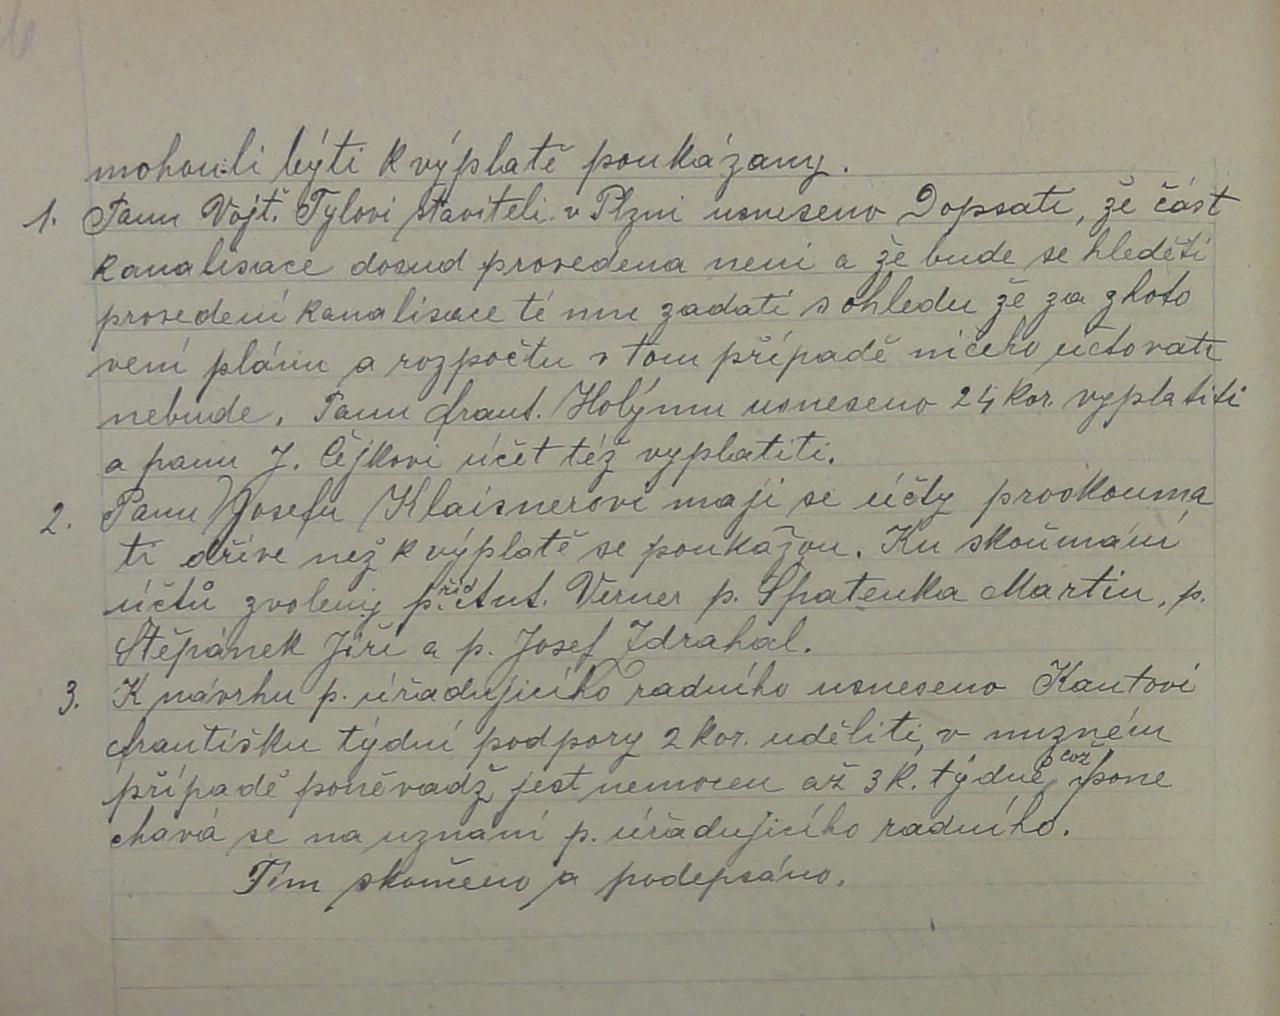 mohou-li býti k výplatě poukázany.
1. Panu Vojt. Tylovi staviteli v Plzni usneseno Dopsati, že část
kanalisace dosud provedena neni a že bude se hleděti
provedení kanalisace té mu zadati s ohledu že za zhoto
vení plánu a rozpočtu v tom případě ničeho účtovati
nebude. Panu Frant. Holýmu usneseno 24 kor. vyplatiti
a panu J. Čejkovi účet též vyplatiti.
2. Panu Josefu Klaisnerovi mají se účty proskouma
ti dříve než k výplatě se poukážou. Ku skoumání
účtů zvoleny p. řid. Ant. Verner p. Spatenka Martin, p.
Štěpánek Jiří a p. Josef Zdrahal.
3. K návrhu p. úřadujícího radního usneseno Kantovi
Františku týdní podpory 2 kor. uděliti, v nuzném
případě poněvadž jest nemocen až 3 K. týdně, což pone
chavá se na uznání p. úřadujícího radního.
Tím skončeno a podepsáno.